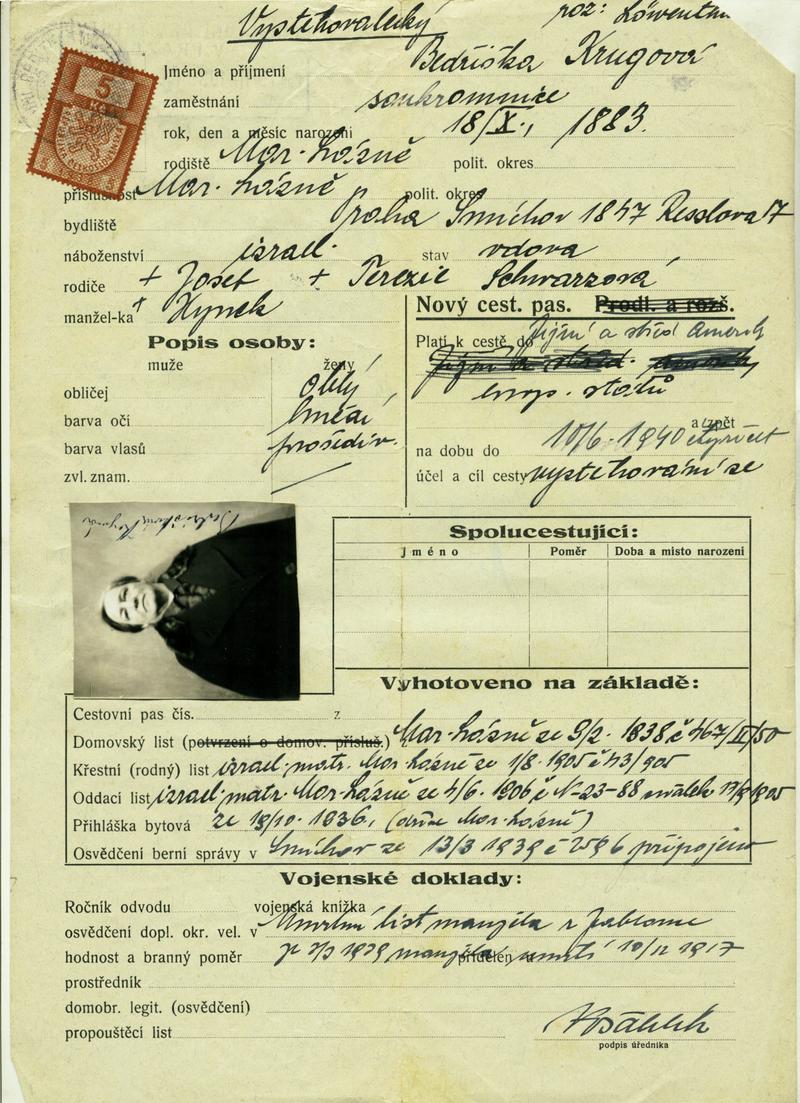 Vystěhovalecký roz: Löwenthal
Jméno a příjmení Bedřiška Krugová
zaměstnání soukromnice
rok, den a měsíc narození 18/X., 1883.
rodiště Mar. Lázně polit. okres
příslušnost Mar. Lázně polit. okres
bydliště Praha Smíchov 1847 Resslova 17
náboženství izrael. stav vdova
rodiče + Josef + Terezie Schwarzová
manžel-ka + Hynek
Nový cest. pas. Prodl. a rozš.
Platí k cestě do Jižní a střed Ameriky
evrop. států
a zpět
na dobu do 10/6. 1940
účel a cíl cesty vystěhování se
Popis osoby:
muže ženy
obličej oblý
barva očí
barva vlasů prošediv.
zvl. znam.
Spolucestující:
Jméno Poměr Doba a místo narození
Vyhotoveno na základě:
Cestovní pas čís. z
Domovský list (potvrzení o domov. přísluš.) Mar. Lázně ze 9/2. 1838 č 467/II/50
Křestní (rodný) list izrael. matr. Mar Lázně ze 1/8. 1905 č 43/905
Oddací list izrael. matr. Mar. Lázně ze 4/6. 1906 č N-23-88
Přihláška bytová ze 19/10. 1936, (dříve Mar. Lázně)
Osvědčení berní správy v Smíchov ze 13/3 1939 č připojeno
Vojenské doklady:
Ročník odvodu vojenská knížka
osvědčení dopl. okr. vel. v Úmrtní list manžela z Jablonce
hodnost a branný poměr 1939 manžela přidělen úmrtí 10/11 1917
prostředník
domobr. legit. (osvědčení)
propouštěcí list
podpis úředníka
5
Kč